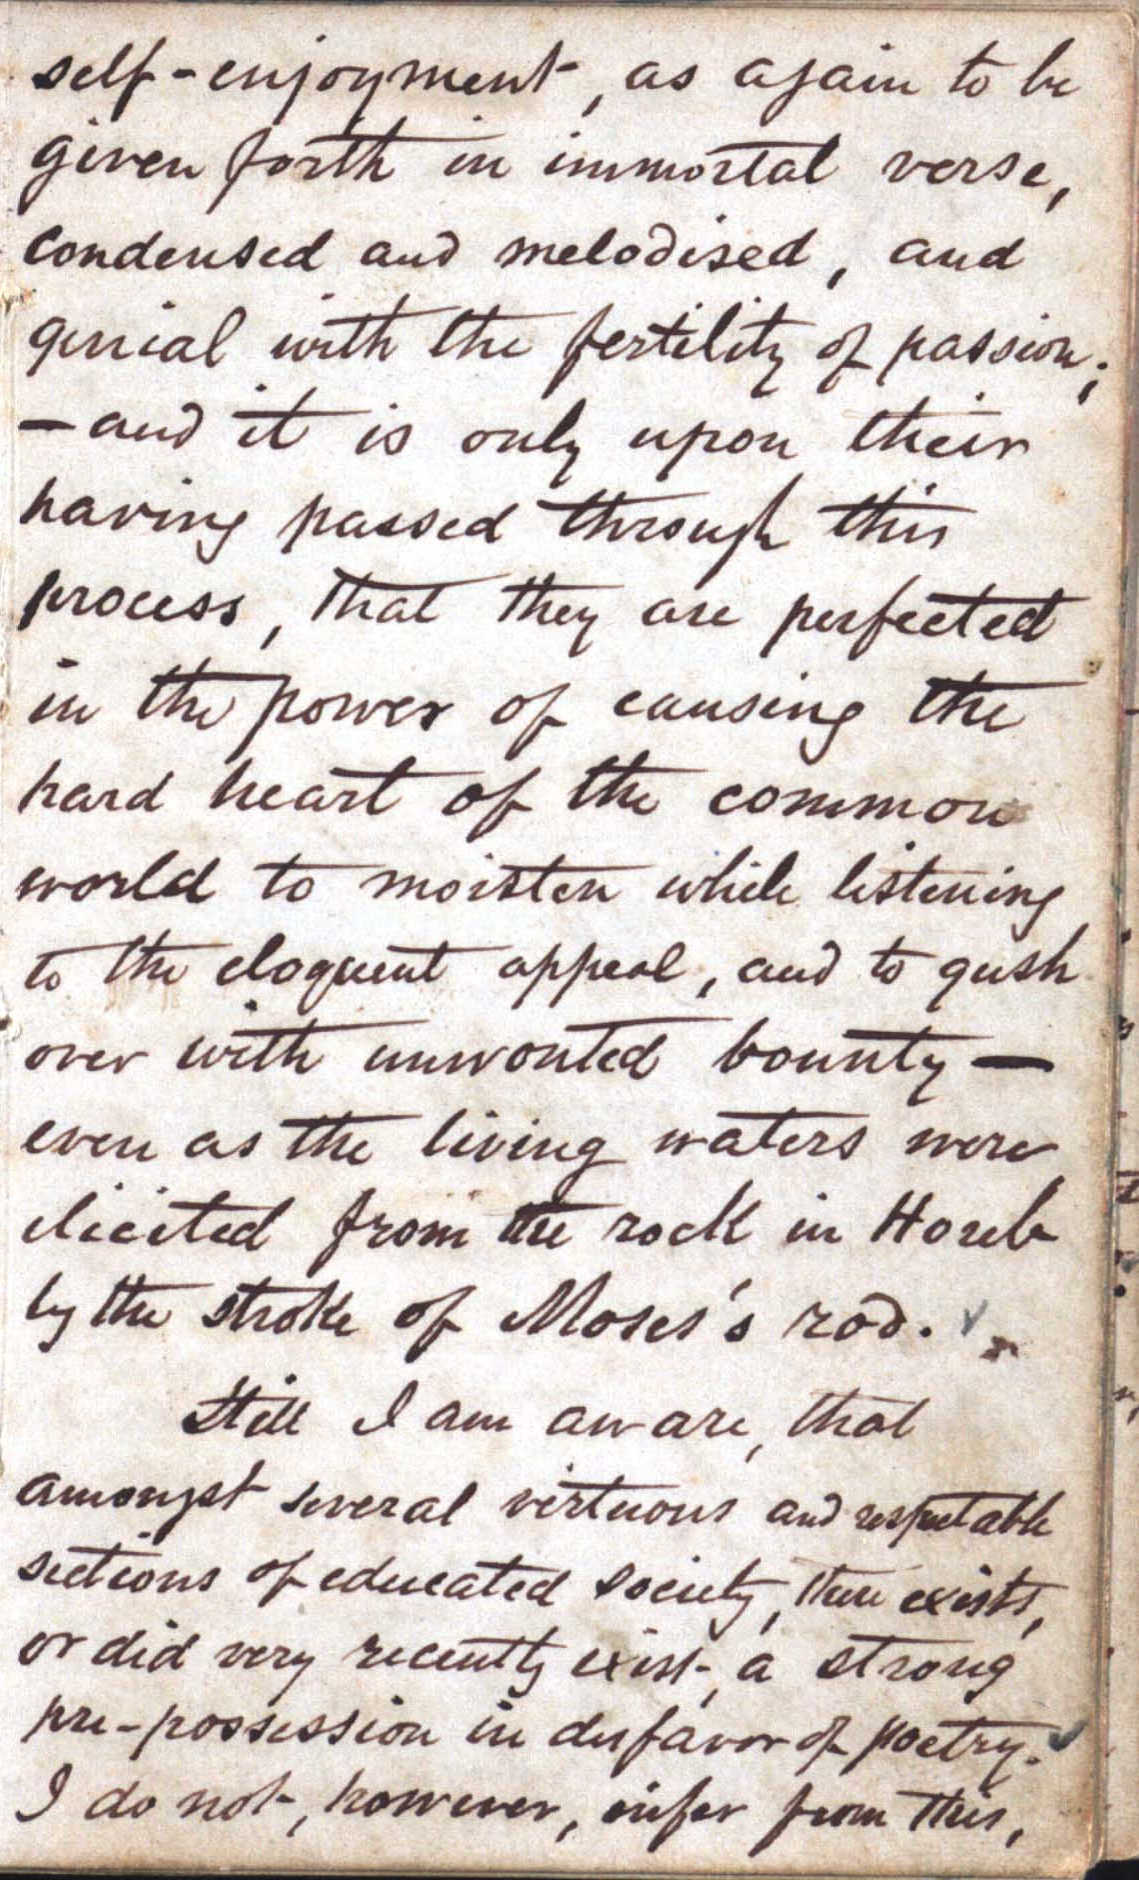 self-enjoyment, as again to be
given forth in immortal verse,
condensed and melodised, and
genial with the fertility of passion;
—and it is only upon their
having passed through this
process, that they are perfected
in the power of causing the
hard heart of the common
world to moisten while listening
to the eloquent appeal, and to gush
over with unwonted bounty —
even as the living waters were
elicited from the rock in Horeb
by the stroke of Moses's rod.
Still I am aware, that
amongst several virtuous and respectable
sections of educated society, there exists,
or did very recently exist, a strong
pre-possession in disfavor of poetry.
I do not, however, infer from this,